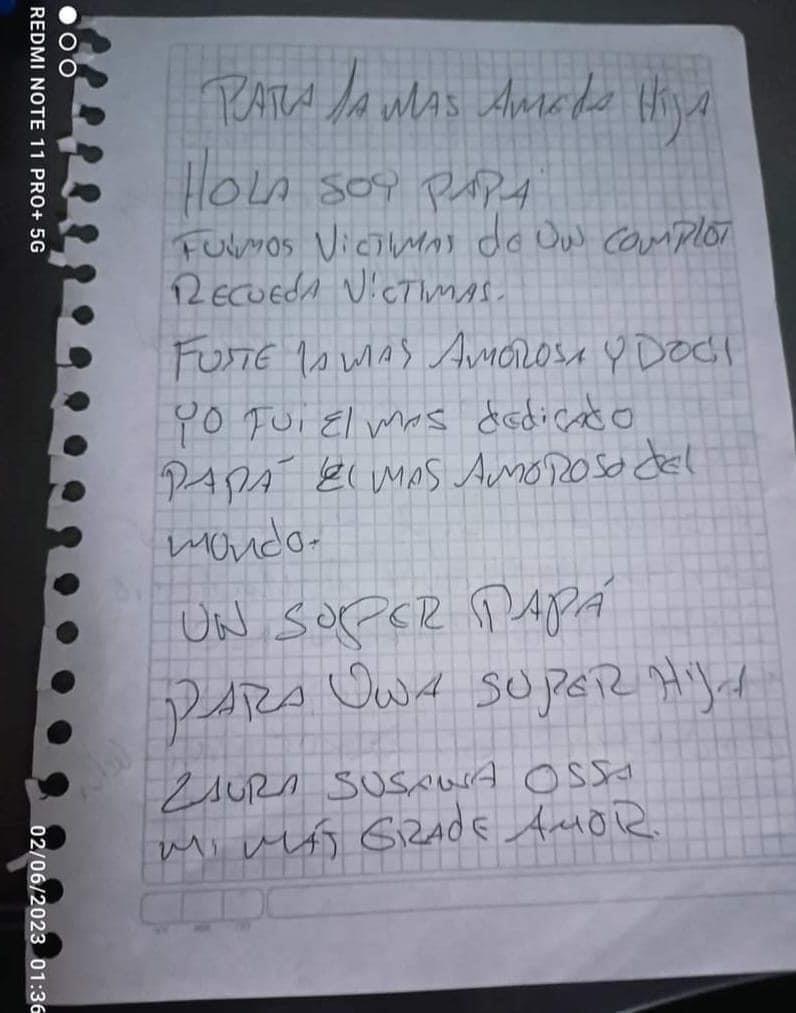 PARA LA MAS AMADA HIJA
HOLA SOY PAPÁ
FUIMOS VICTIMAS de UN COMPLOT
RECUEDA VICTIMAS.
FUSTE LA MAS AMOROSA Y DOCI
YO FUI El MAS dedicado
PAPÁ El MAS AMOROSO del
mondo.
UN SOPER PAPÁ
PARA UNA SUPER HIJA
LAURA SUSANA OSSA
MI MÁS GRADE AMOR.
REDMI NOTE 11 PRO+ 5G
02/06/2023 01:36